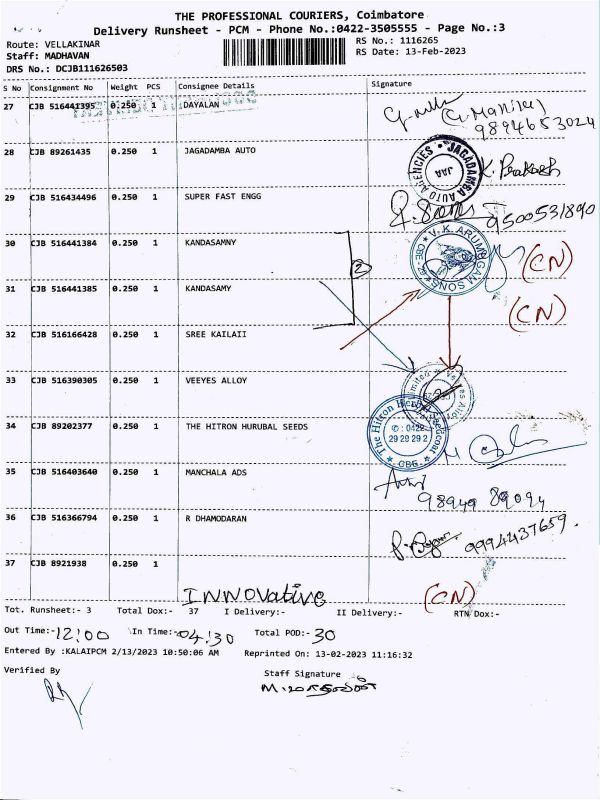 THE PROFESSIONAL COURIERS, Coimbatore
Delivery Runsheet - PCM - Phone No.:0422-3505555 - Page No.:3
Route: VELLAKINAR
RS No.: 1116265
Staff: MADHAVAN
RS Date: 13-Feb-2023
DRS No.: DCJB111626503
S No Consignment No Weight PCS Consignee Details Signature
27 CJB 516441395 0.250 1 DAYALAN
9894653024
28 CJB 89261435 0.250 1 JAGADAMBA AUTO
JAGADAMBA AUTO AGENCIES JAA
K. Prakash
29 CJB 516434496 0.250 1 SUPER FAST ENGG
9500531890
30 CJB 516441384 0.250 1 KANDASAMNY
V. K. ARUMUGAM SONS
(CN)
2
31 CJB 516441385 0.250 1 KANDASAMY
(CN)
32 CJB 516166428 0.250 1 SREE KAILAII
33 CJB 516390305 0.250 1 VEEYES ALLOY
34 CJB 89202377 0.250 1 THE HITRON HURUBAL SEEDS
The Hitron Herbal
✆ : 0422
29 29 29 2
CBE
35 CJB 516403640 0.250 1 MANCHALA ADS
98949 89094
36 CJB 516366794 0.250 1 R DHAMODARAN
9994437659.
37 CJB 8921938 0.250 1
INNOVative
(CN)
Tot. Runsheet:- 3 Total Dox:- 37 I Delivery:- II Delivery:- RTN Dox:-
Out Time:- 12:00 In Time:- 04:30 Total POD:- 30
Entered By :KALAIPCM 2/13/2023 10:50:06 AM Reprinted On: 13-02-2023 11:16:32
Verified By
Staff Signature